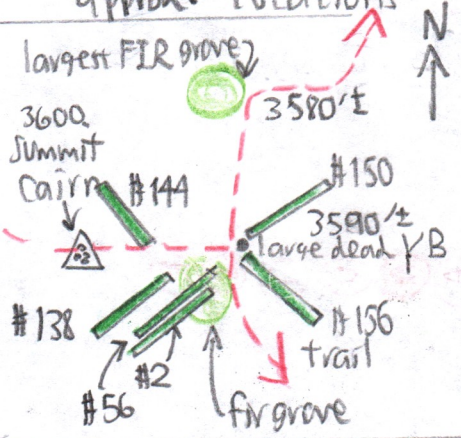 approx. locations
N
largest FIR grove
3580'±
3600
summit
cairn
#144
#150
3590'±
large dead YB
#138
#156
trail
#2
#56
fir grove